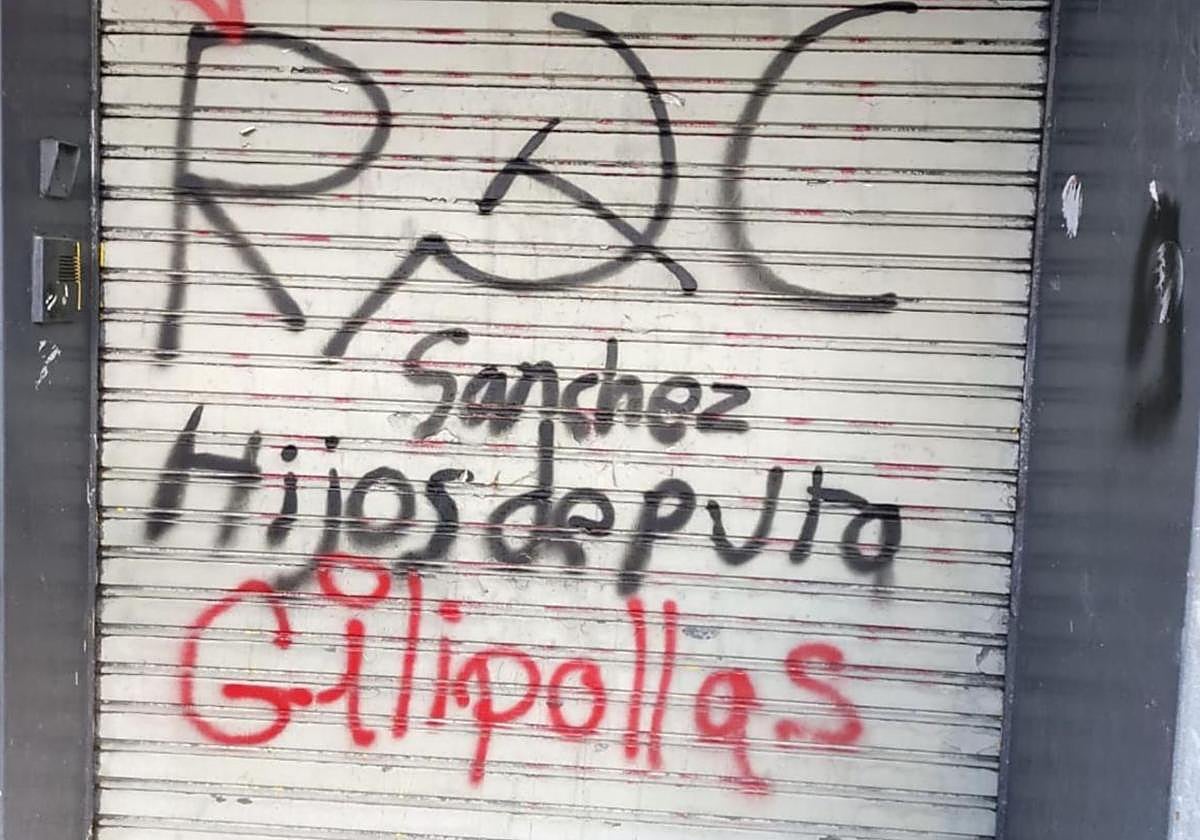 R☭C
Sanchez
Hijos de puta
Gilipollas